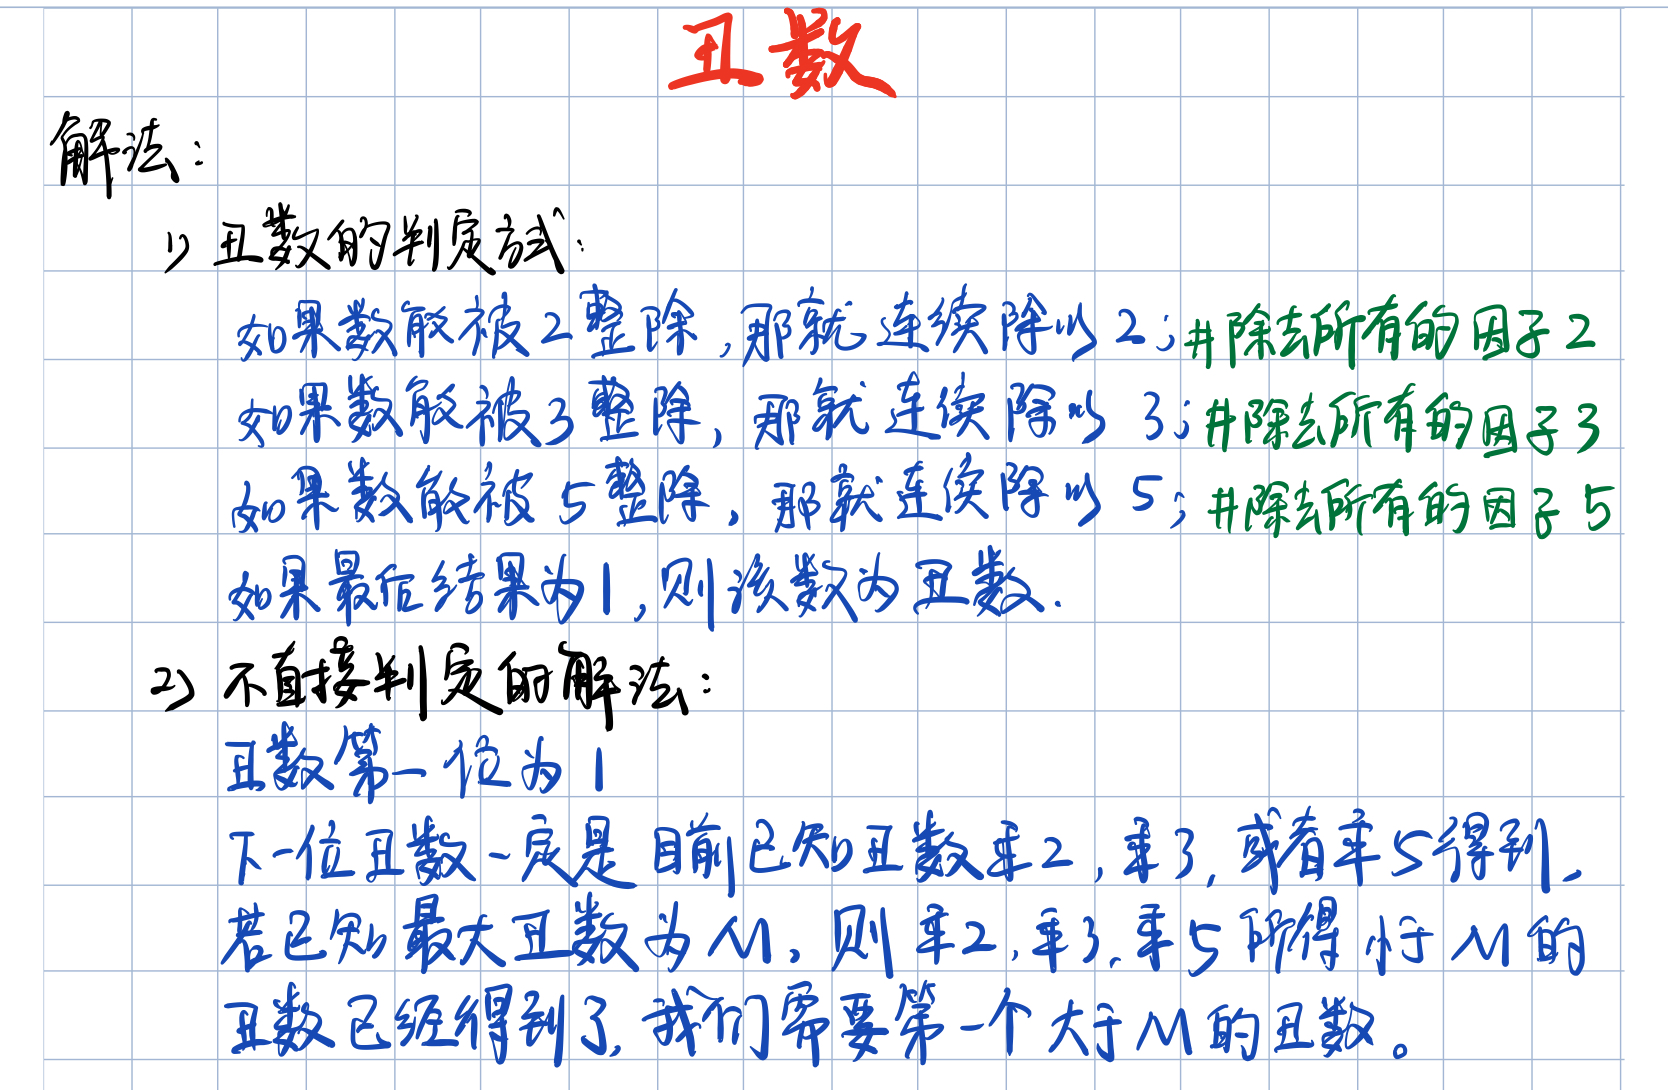 丑数
解法：
1) 丑数的判定方式：
如果数能被2整除,那就连续除以2；#除去所有的因子2
如果数能被3整除，那就连续除以3；#除去所有的因子3
如果数能被5整除，那就连续除以5；#除去所有的因子5
如果最后结果为1,则该数为丑数.
2) 不直接判定的解法：
丑数第一位为1
下一位丑数一定是目前已知丑数乘2,乘3,或者乘5得到.
若已知最大丑数为M,则乘2,乘3,乘5所得小于M的
丑数已经得到了,我们需要第一个大于M的丑数。